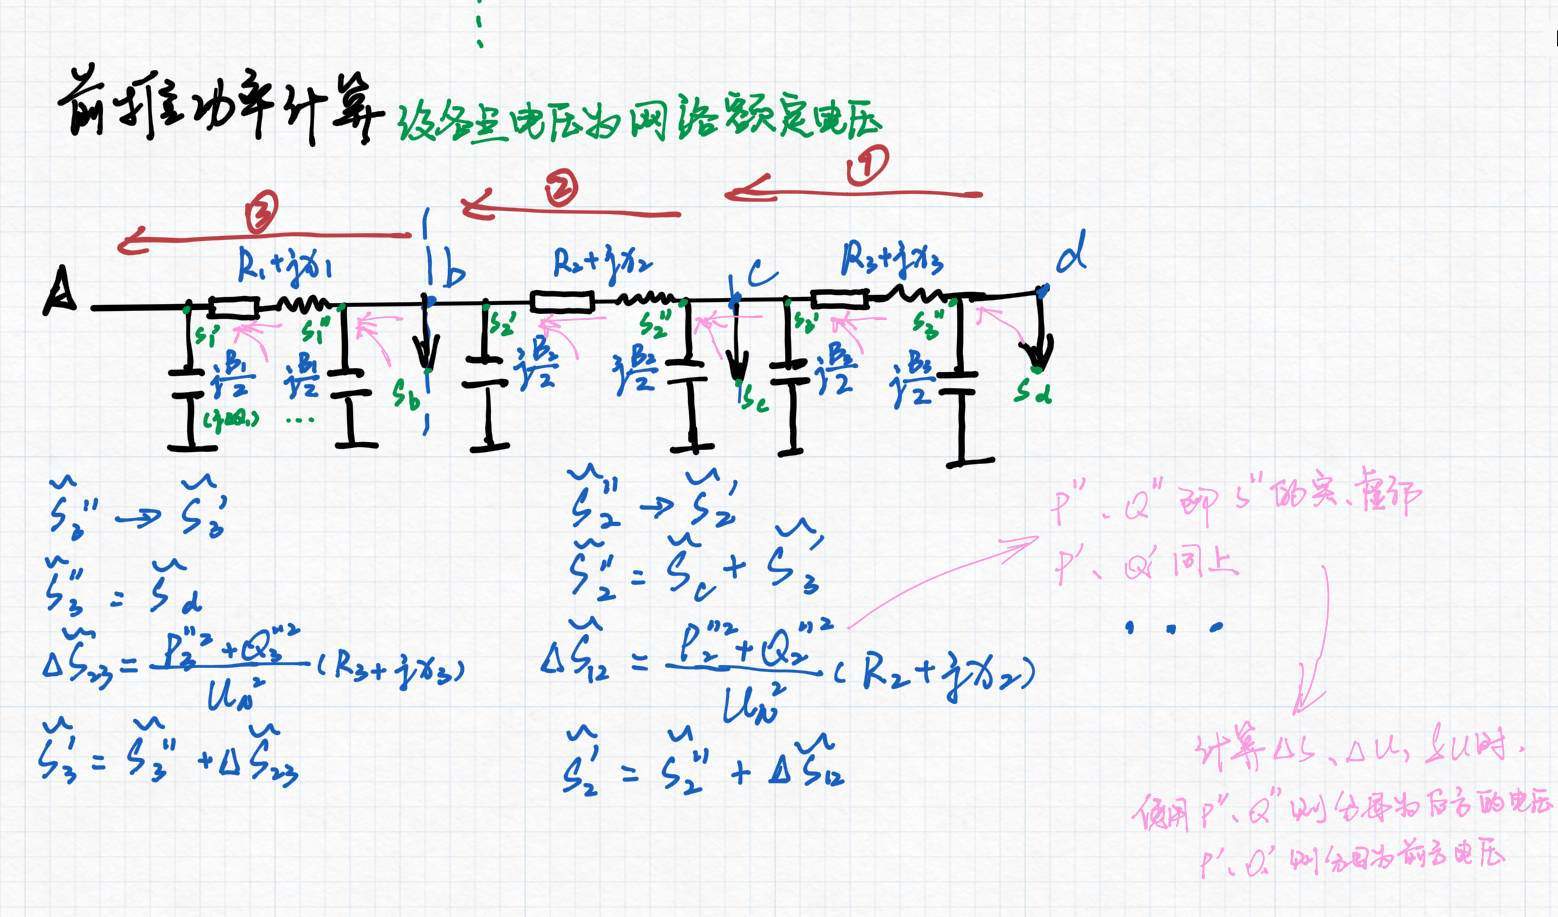 前推功率计算 设各点电压为网络额定电压
③ ② ①
R₁+jx₁ R₂+jx₂ R₃+jx₃
A b c d
S₁' S₁'' S₂' S₂'' S₃' S₃''
jB₁/2 jB₁/2 jB₂/2 jB₂/2 jB₂/2 jB₃/2
(jΔQ₁) ... S_b S_c S_d
S̃₃'' → S̃₃'
S̃₃'' = S̃_d
ΔS̃₂₃ = (P₃''²+Q₃''²)/U_N² (R₃+jx₃)
S̃₃' = S̃₃'' + ΔS̃₂₃
S̃₂'' → S̃₂'
S̃₂'' = S̃_c + S̃₃'
ΔS̃₁₂ = (P₂''²+Q₂''²)/U_N² (R₂+jx₂)
S̃₂' = S̃₂'' + ΔS̃₁₂
P''、Q''即S''的实、虚部
P'、Q'同上
...
计算ΔS、ΔU, δU时.
使用P''、Q''则分母为后方的电压
P'、Q'则分母为前方电压